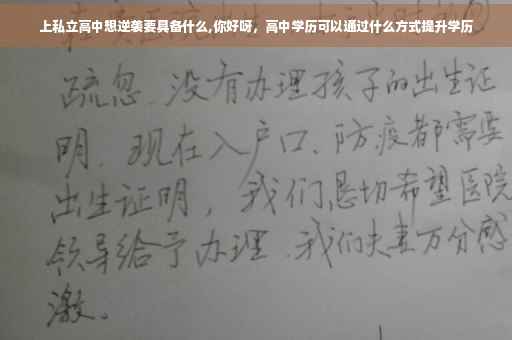 上私立高中想逆袭要具备什么,你好呀，高中学历可以通过什么方式提升学历
疏忽、没有办理孩子的出生证
明、现在入户口、防疫都需要
出生证明，我们恳切希望医院
领导给予办理、我们夫妻万分感
激。